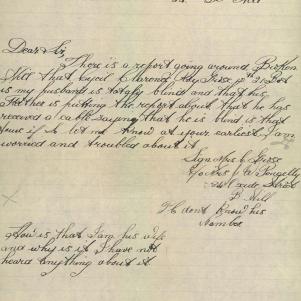 Dear Sir
There is a report going around Broken
Hill that Cyril Clarence
is my husband is totally blind and that his
Father is putting the report about that he has
received a cable saying that he is blind is that
true if so let me know at your earliest I am
worried and troubled about it
Mrs C
Street
B Hill
I dont know his
Number
How is that I am his wife
and why is it I have not
heard anything about it